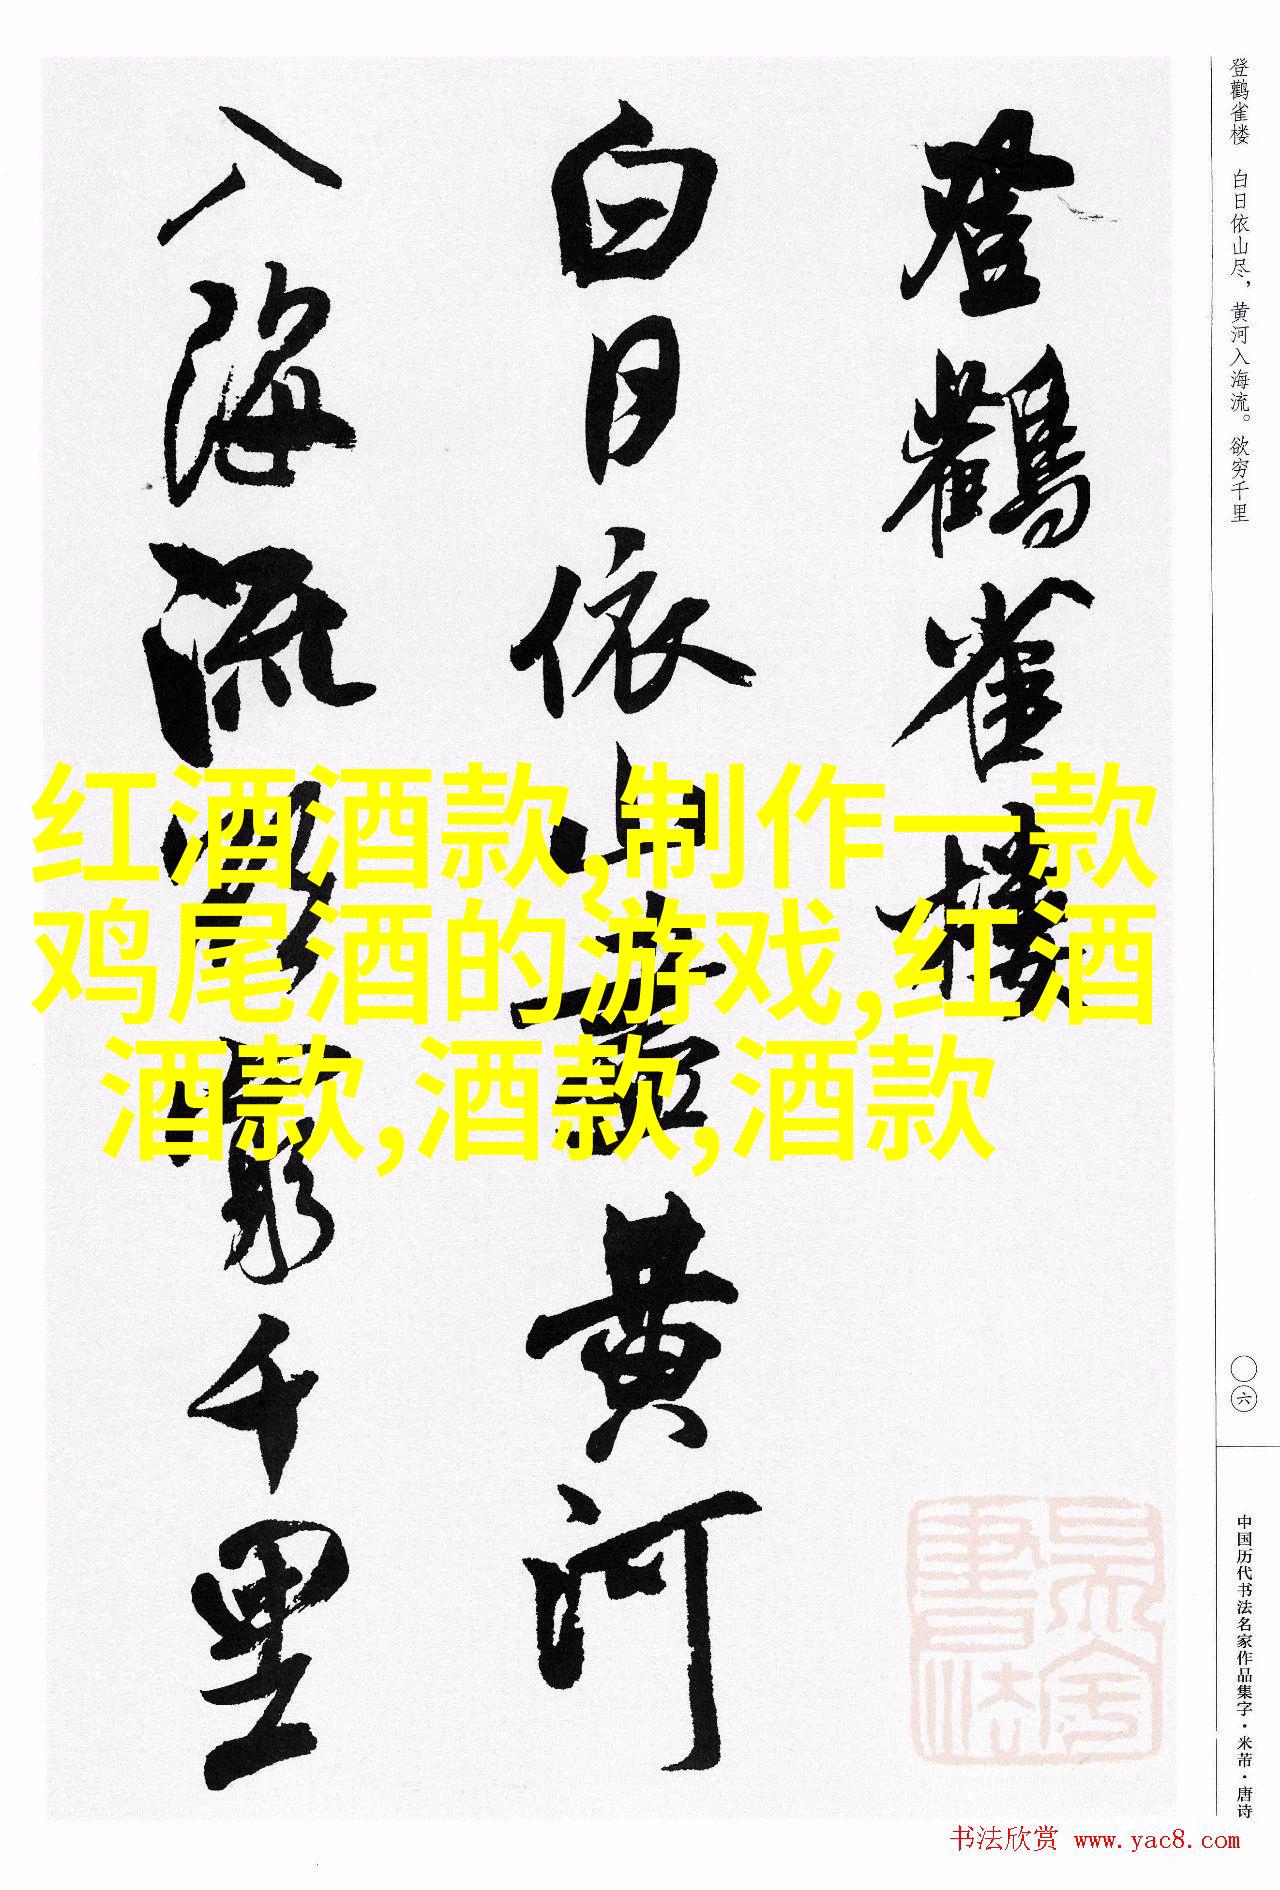 登鹳雀楼 白日依山尽，黄河入海流。欲穷千里
登鸛雀樓
白日依山盡黄河
入海流欲窮千里
红酒酒款,制作一款
鸡尾酒的游戏,红酒
酒款,酒款,酒款
〇六
中国历代书法名家作品集字·米芾·唐诗
书法欣赏 www.yac8.com